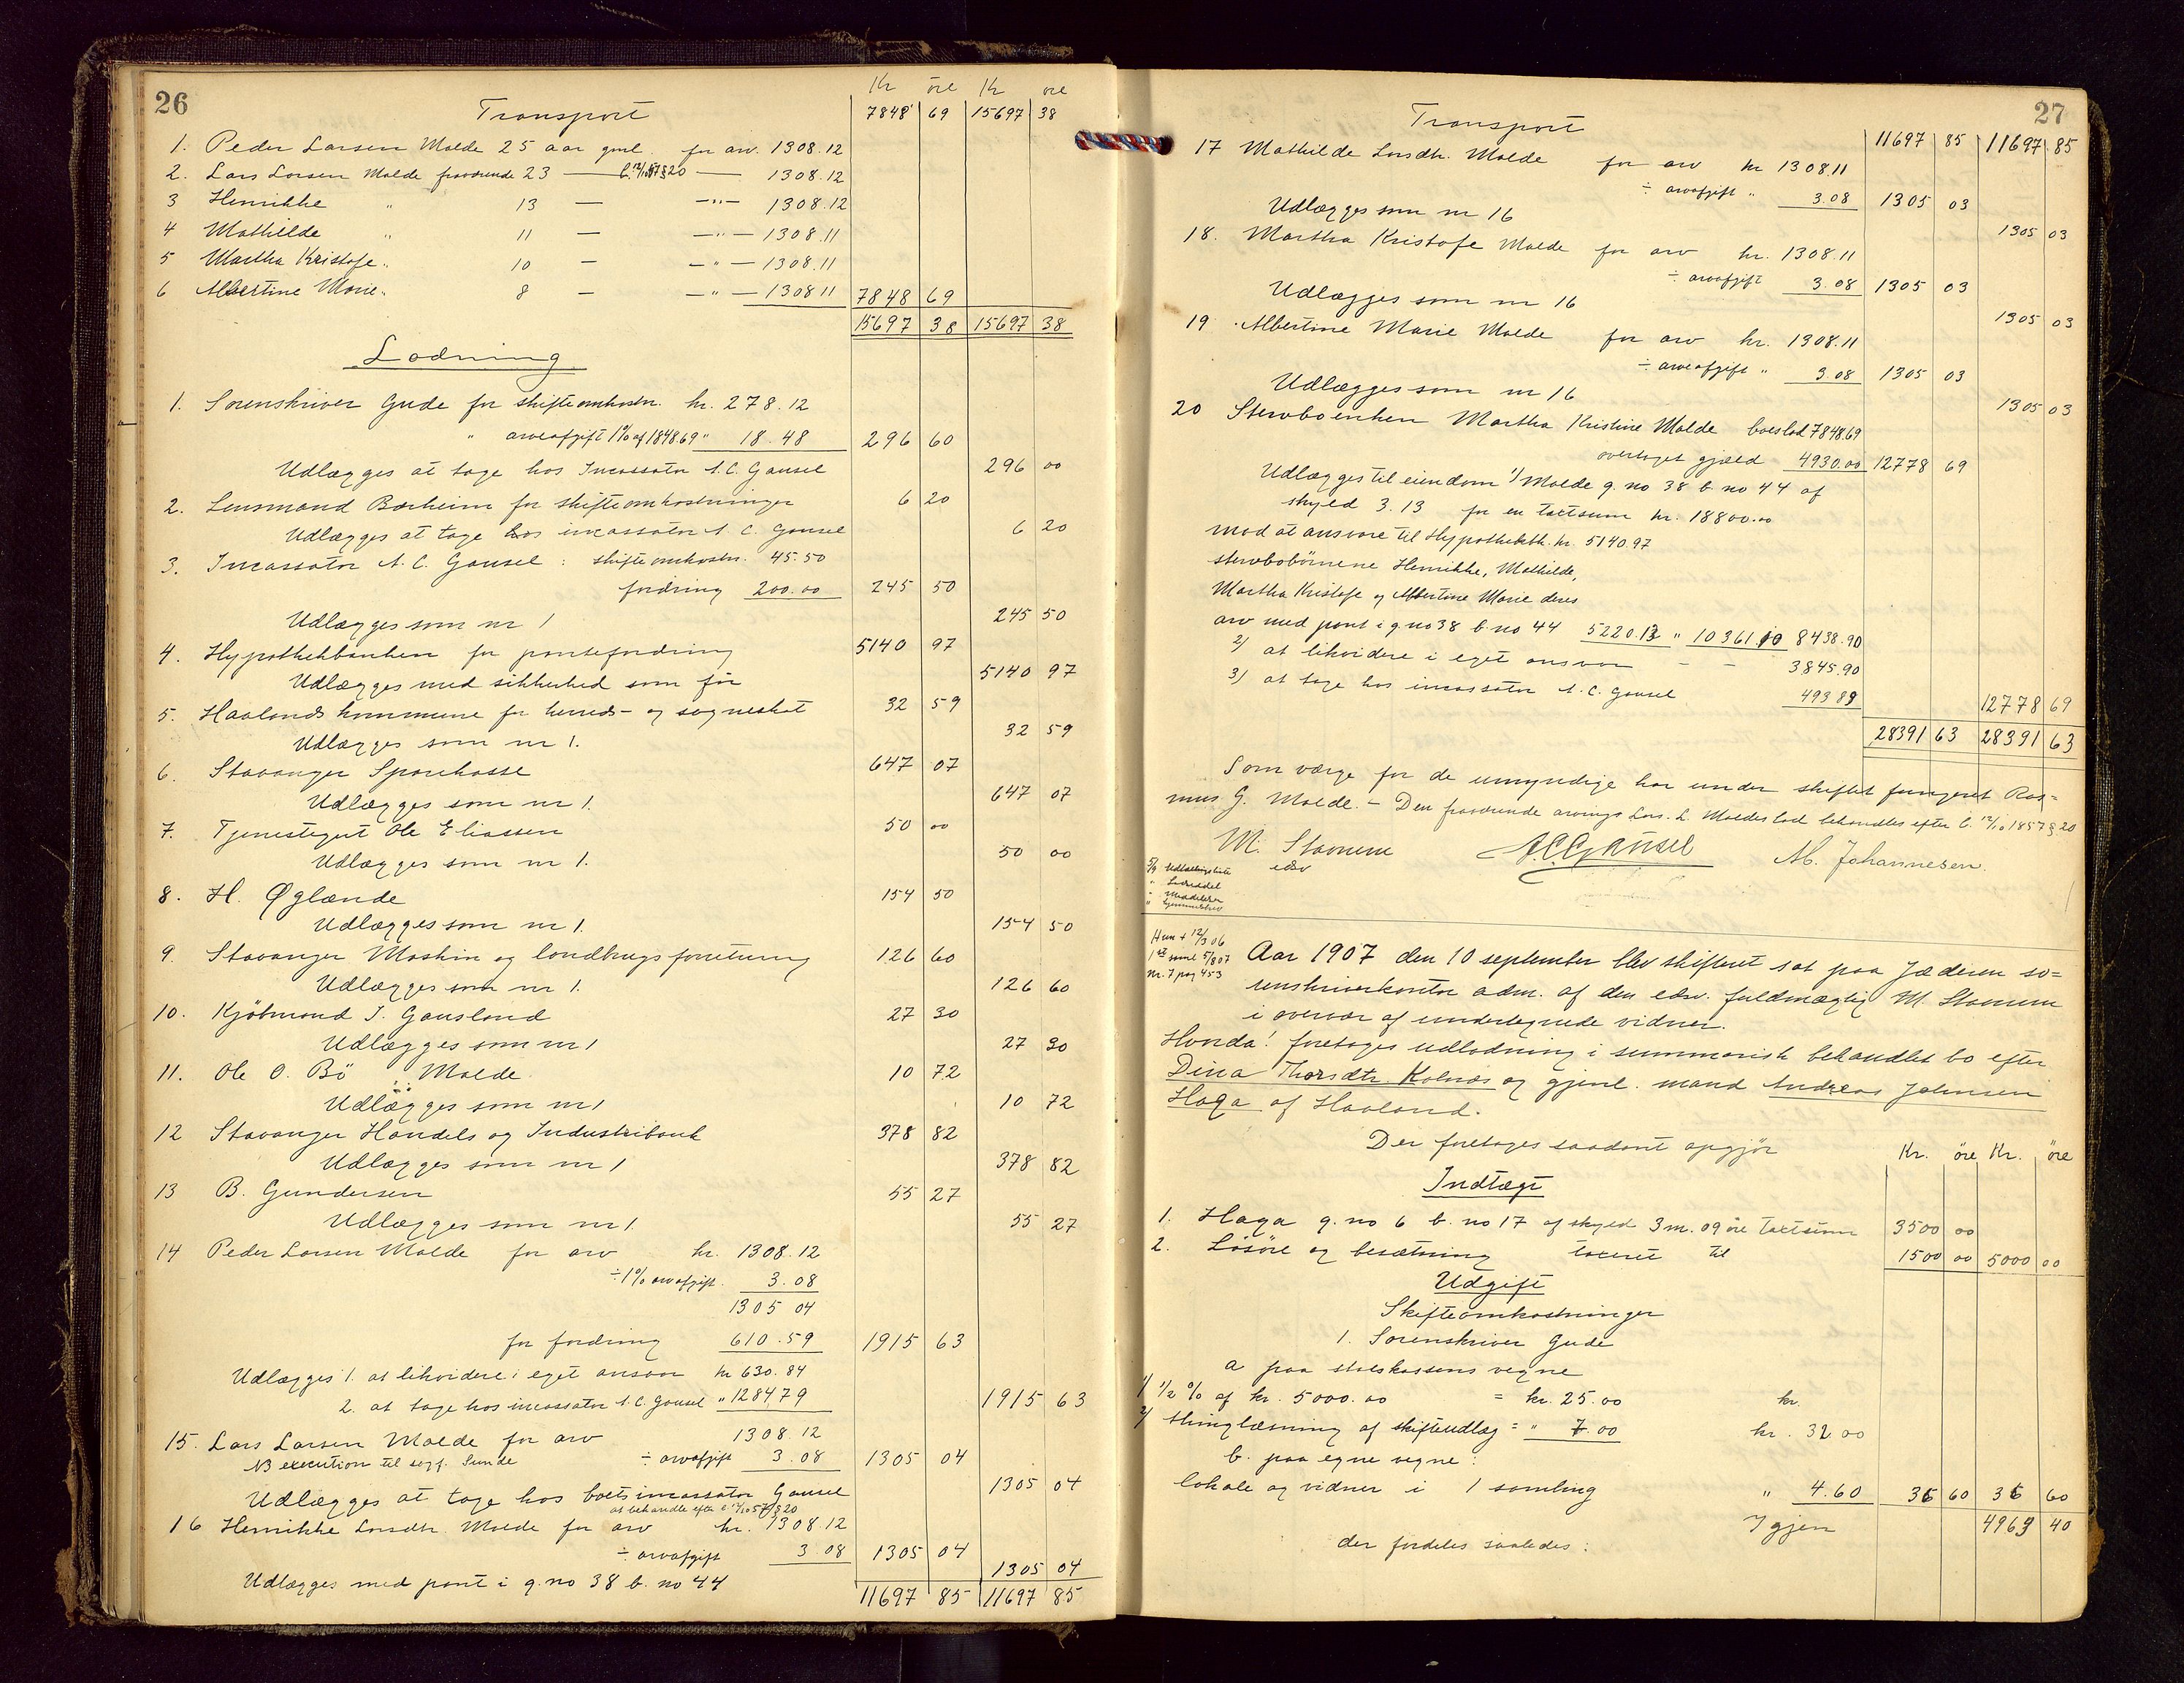 26
Kr öre Kr öre
Transport 7848 69 15697 38
1. Peder Larsen Molde 25 aar gml. for arv. 1308.12
2. Lars Larsen Molde fraværende 23 — — 1308.12
3 Henrikke " 13 — —"— 1308.12
4 Mathilde " 11 — —"— 1308.11
5 Martha Kristofe " 10 — —"— 1308.11
6 Albertine Marie " 8 — —"— 1308 11 7848 69
15697 38 15697 38
Lodning
1. Sorenskriver Gude for skifteomkostn. kr. 278.12
" arveafgift 1% af 1848.69 " 18.48 296 60
Udlægges at tage hos Incassator A. C. Gausel 296 00
2. Lensmand Barheim for skifteomkostninger 6 20
Udlægges at tage hos incassator A. C. Gausel 6 20
3. Incassator A. C. Gausel : skifteomkostn. 45.50
fordring 200.00 245 50
Udlægges som nr 1 245 50
4. Hypothekbanken for pantefordring 5140 97
Udlægges med sikkerhed som før 5140 97
5. Haalands kommune for herreds- og sogneskat 32 59
Udlægges som nr 1. 32 59
6. Stavanger Sparekasse 647 07
Udlægges som nr 1. 647 07
7. Tjenestegut Ole Eliassen 50 00
Udlægges som nr 1. 50 00
8. H. Øglænde 154 50
Udlægges som nr 1. 154 50
9. Stavanger Maskin og landbrugsforretning 126 60
Udlægges som nr 1. 126 60
10. Kjöbmand T. Gausland 27 30
Udlægges som nr 1 27 30
11. Ole O. Bö Molde 10 72
Udlægges som nr 1 10 72
12 Stavanger Handels og Industribank 378 82
Udlægges som nr 1 378 82
13 B. Gundersen 55 27
Udlægges som nr 1. 55 27
14 Peder Larsen Molde for arv kr. 1308.12
÷ 1% arvafgift. 3.08
1305 04
for fordring 610.59 1915 63
Udlægges 1. at likvidere i eget ansvar kr 630.84
2. at tage hos incassator A. C. Gausel " 1284.79 1915 63
15. Lars Larsen Molde for arv 1308.12
NB execution til sagf. Sunde ÷ arvafgift 3.08 1305 04
Udlægges at tage hos boets incassator Gausel 1305 04
at behandle efter l. 12/10 57 § 20
16 Henrikke Larsdtr. Molde for arv kr. 1308.12
÷ arvafgift 3.08 1305 04
Udlægges med pant i g. no 38 b. no 44 1305 04
11697 85 11697 85
27
Transport 11697 85 11697 85
17 Mathilde Larsdtr. Molde for arv kr 1308.11
÷ arvafgift " 3.08 1305 03
Udlægges som nr 16 1305 03
18. Martha Kristofe Molde for arv kr. 1308.11
÷ arvafgift 3.08 1305 03
Udlægges som nr 16 1305 03
19 Albertine Marie Molde for arv kr. 1308.11
÷ arveafgift " 3.08 1305 03
Udlægges som nr 16 1305 03
20 Stervboenken Martha Kristine Molde boeslod 7848.69
overtaget gjæld 4930.00 12778 69
Udlægges til eiendom 1/ Molde g. no 38 b. no 44 af
skyld 3.13 for en taxtsum kr. 18800.00
mod at ansvare til Hypothekbk. kr. 5140.97
stervbobörnene Henrikke, Mathilde,
Martha Kristofe og Albertine Marie deres
arv med pant i g. no 38 b. no 44 5220.13 " 10361.10 8438.90
2/ at likvidere i eget ansvar - - 3845.90
3/ at tage hos incassator A. C. Gausel 493 89 12778 69
28391 63 28391 63
Som værge for de umyndige har under skiftet fungeret Ras=
mus G. Molde. - Den fraværende arvings Lars L. Moldes lod behandles efter l. 12/10 1857 § 20
M. Stavnem A C Gausel M. Johannesen.
edsv
Udlodningsliste
Hun + 12/3 06
1ste saml 5/8 07
nr. 7 pag 453
Aar 1907 den 10 september blev skifteret sat paa Jæderen so=
renskriverkontor adm. af den edsv. fuldmægtig M. Stavnem
i overvær af undertegnede vidner.
Hvorda! foretoges udlodning i summarisk behandlet bo efter
Dina Thorsdtr. Kolnæs og gjenl. mand Andreas Johnsen
Haga af Haaland.
Der foretoges saadant opgjör Kr. öre Kr. öre
Indtægt
1. Haga g. no 6 b. no 17 af skyld 3 m. 09 öre taxtsum 3500 00
2. Lösöre og besætning taxeret til 1500 00 5000 00
Udgift
Skifteomkostninger
1. Sorenskriver Gude
a paa statskassens vegne
1/ ½ % af kr. 5000.00 = kr. 25.00 kr.
2/ thinglæsning af skifteudlæg = " 7.00 kr. 32 00
b. paa egne vegne:
lokale og vidner i 1 samling " 4.60 36 60 36 60
Igjen 4963 40
der fordeles saaledes: